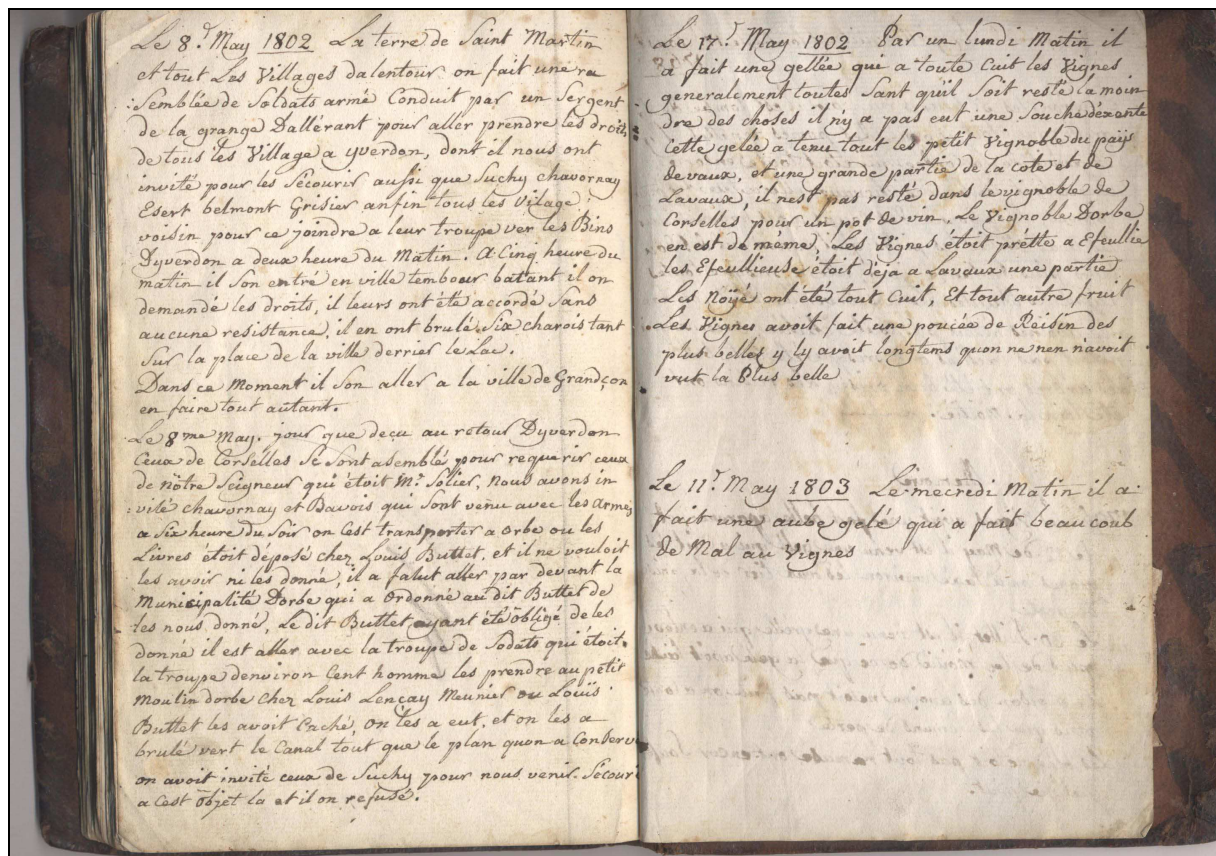 Le 8.! May 1802 La terre de Saint Martin
et tout Les Villages dalentour on fait une ra
:semblée de Soldats armé Conduit par un Sergent
de la grange Dallérant pour aller prendre les droits
de tous les Village a yverdon, dont il nous ont
invité pour les Sécourir aussi que Suchy chavornay
Esert belmont Grisier anfin tous les Vilage
voisin pour ce joindre a leur troupe ver les Bins
Dyverdon a deux heure du Matin. A Cinq heure du
matin il Son entré en ville tembour batant il on
demandé les droits, il leurs ont été accordé Sans
aucune resistance, il en ont brulé Six charois tant
Sur la place de la ville derrier le Lac.
Dans ce Moment il Son aller a la ville de Grandçon
en faire tout autant.
Le 8me May. jour que deçu au retour Dyverdon
Ceux de Corselles Se Sont asemblé pour requerir ceux
de nôtre Seigneur qui étoit Mr. Solier, Nous avons in
:vité chavornay et Bavois qui Sont venu avec les Armes
a Six heure du Soir on Cest transporter a Orbe ou les
Livres étoit déposé chez Louis Buttet, et il ne vouloit
les avoir ni les donné, il a falut aller par devant la
Municipalité Dorbe qui a Ordonné au dit Buttet de
les nous donné, Le dit Buttet ayant été obligé de les
donné il est aller avec la troupe de Sodats qui étoit
la troupe denviron Cent homme les prendre au petit
Moulin dorbe Chez Louis Lençay Meunier ou Louïs
Buttet les avoit Caché, on les a eut, et on les a
brulé vert le Canal tout que le plan quon a Conserv
on avoit invité ceux de Suchy pour nous venir Sécouri
a Cest objet la et il on refusé.
Le 17.! May 1802 Par un lundi Matin il
a fait une gellée qui a toute Cuit les Vignes
generalement toutes Sant quil Soit resté la moin
dre des choses il ny a pas eut une Souche déxente
Cette gelée a tenu tout les petit Vignoble du païs
devaux, et une grande partie de la cote et de
Lavaux, il nest pas resté dans le vignoble de
Corselles pour un pot de vin, Le Vignoble Dorbe
en est de même, Les Vignes étoit prétte a Efeullie
les Efeullieuse étoit déja a Lavaux une partie
Les Noÿé ont été tout Cuit, Et tout autre fruit
Les Vignes avoit fait une poucée de Reisin des
plus belles y ly avoit longtems quon ne nen navoit
vut la Plus belle
Le 11.! May 1803 Le mecredi Matin il a
fait une aube gelé qui a fait beaucoub
de Mal au Vignes